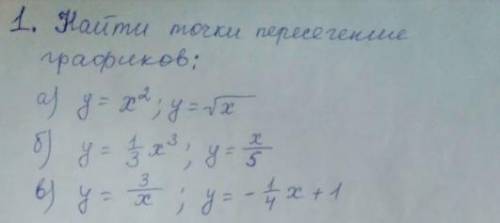 1. Найти точки пересечение
графиков:
а) y = x²; y = √x
б) y = 1/3 x³; y = x/5
в) y = 3/x ; y = - 1/4 x + 1